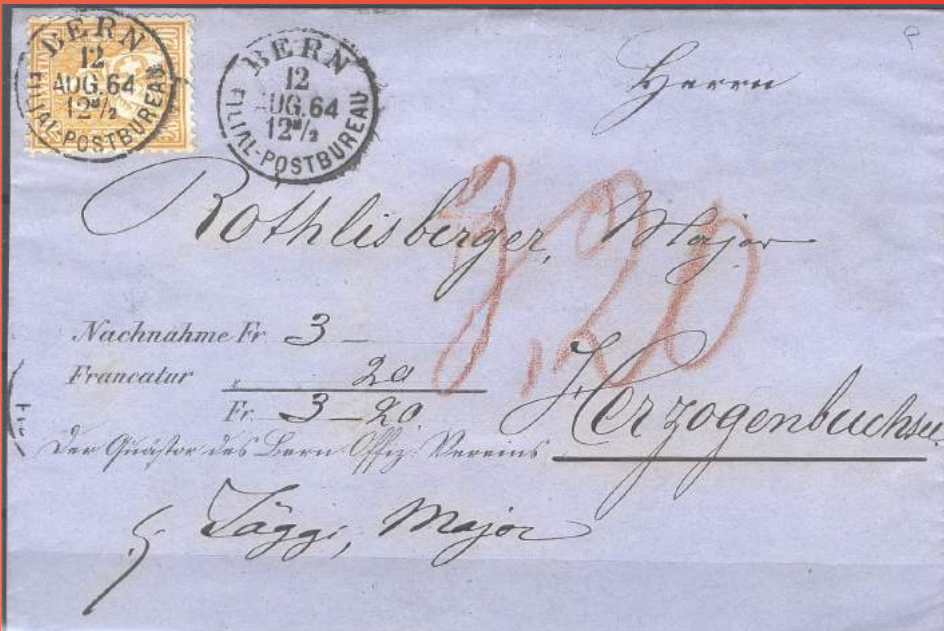 BERN
12
AUG. 64
12 ᴹ/2
FILIAL-POSTBUREAU
BERN
12
AUG. 64
12 ᴹ/2
FILIAL-POSTBUREAU
Herrn
Rothlisberger, Major
3,20
Nachnahme Fr. 3 —
Francatur " 20
Fr. 3 — 20.
Herzogenbuchsee.
Der Quästor des Bern. Offiz. Vereins
Jäggi, Major